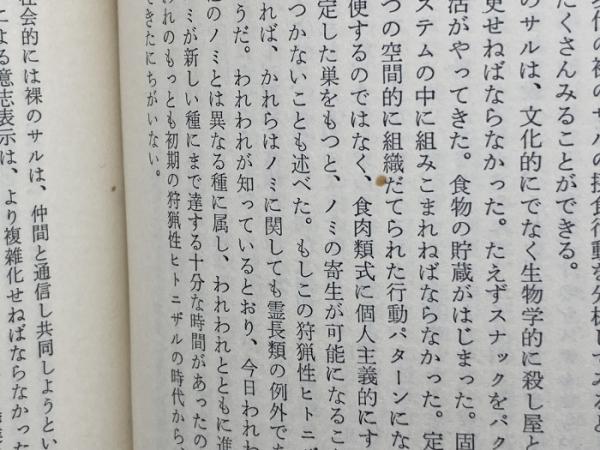 代の裸のサルの摂食行動を分析してみると
たくさんみることができる。
のサルは、文化的にでなく生物学的に殺し屋と
更せねばならなかった。たえずスナックをパク
活がやってきた。食物の貯蔵がはじまった。固
ステムの中に組みこまれねばならなかった。定
つの空間的に組織だてられた行動パターンにな
使するのではなく、食肉類式に個人主義的にす
定した巣をもつと、ノミの寄生が可能になること
つかないことも述べた。もしこの狩猟性ヒトニザ
れば、かれらはノミに関しても霊長類の例外であ
うだ。われわれが知っているとおり、今日われわ
のノミとは異なる種に属し、われわれとともに進
ミが新しい種にまで達する十分な時間があったの
れのもっとも初期の狩猟性ヒトニザルの時代から、
できたにちがいない。
社会的には裸のサルは、仲間と通信し共同しようとい
による意志表示は、より複雑化せねばならなかった